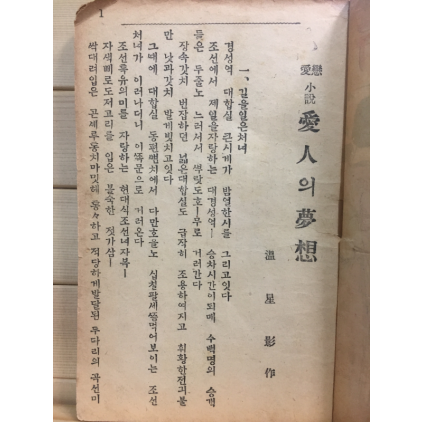 戀愛小說 愛人의夢想
溫星影作
一、길을잃은처녀
경성역 대합실 큰시계가 밤열한시를 그리고잇다
조선에서 제일을자랑하는 대경성역ㅡ 승차시간이되매 수백명의 승객
들은 두줄노 느러서서 뿌랏도호ㅡ무로 거러간다
장속갓치 번잡하던 넓은대합실도 금작히 조용하여지고 휘황한전긔불
만 낫과갓치 발게빗치고잇다
그때에 대합실 동편뻰치에서 다만호을노 조선
처녀가 이러나더니 이쪽문으로 거러온다
조선특유의미를 자랑하는 현대식조선녀자복ㅡ
자색삐로도저고리를 입은 불숙한 젓가삼ㅡ
싹대려입은 곤세루동치마밋헤 동々하고 적당하게발달된 두다리의 곡선미
1